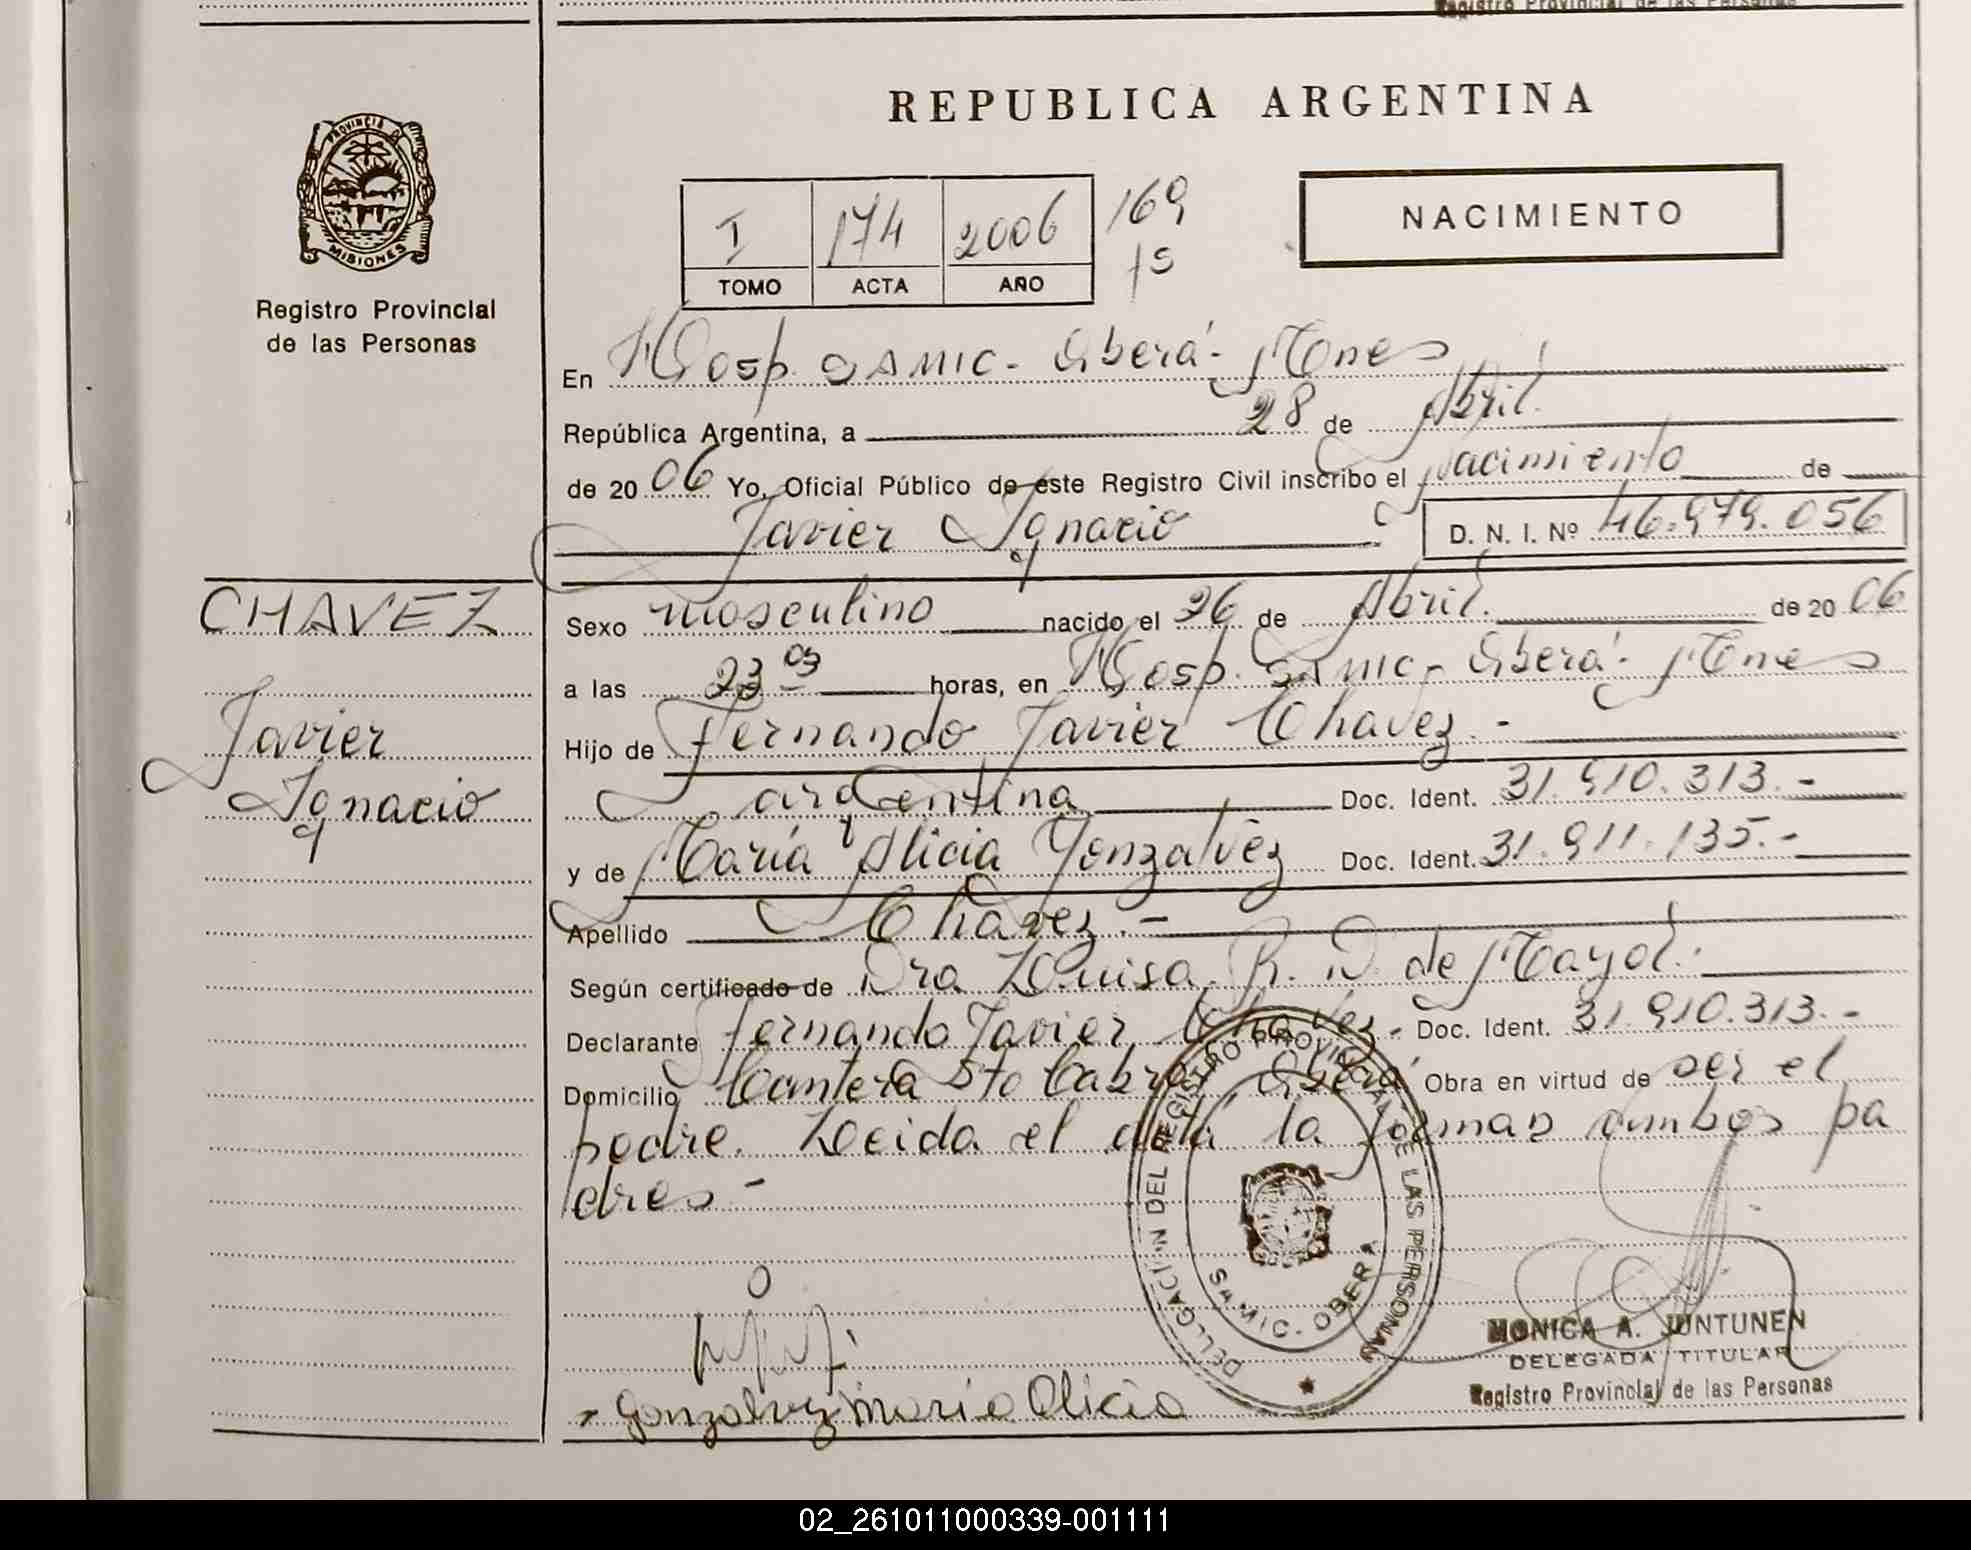 Registro Provincial de las Personas
REPUBLICA ARGENTINA
PROVINCIA DE
MISIONES
Registro Provincial
de las Personas
I 174 2006 169
TOMO ACTA AÑO
NACIMIENTO
En Hosp. SAMIC - Oberá - Mnes
República Argentina, a 28 de Abril.
de 20 06 Yo, Oficial Público de este Registro Civil inscribo el Nacimiento de
Javier Ignacio D. N. I. Nº 46.979.056
CHAVEZ
Javier
Ignacio
Sexo masculino nacido el 26 de Abril. de 20 06
a las 23 03 horas, en Hosp. SAMIC - Oberá - Mnes
Hijo de Fernando Javier Chavez. -
argentina Doc. Ident. 31.910.313. -
y de María Alicia Gonzalvez Doc. Ident. 31.911.135. -
Apellido Chavez. -
Según certificado de Dra Luisa R. D. de Mayol.
Declarante Fernando Javier Chavez. Doc. Ident. 31.910.313. -
Domicilio Cantera Sto Cabral Oberá Obra en virtud de ser el
padre. Leida el acta la firman ambos pa
dres -
DELEGACION DEL REGISTRO PROVINCIAL DE LAS PERSONAS
SAMIC - OBERA
MONICA A. JUNTUNEN
DELEGADA TITULAR
Registro Provincial de las Personas
Gonzalvez Maria Alicia
02_261011000339-001111